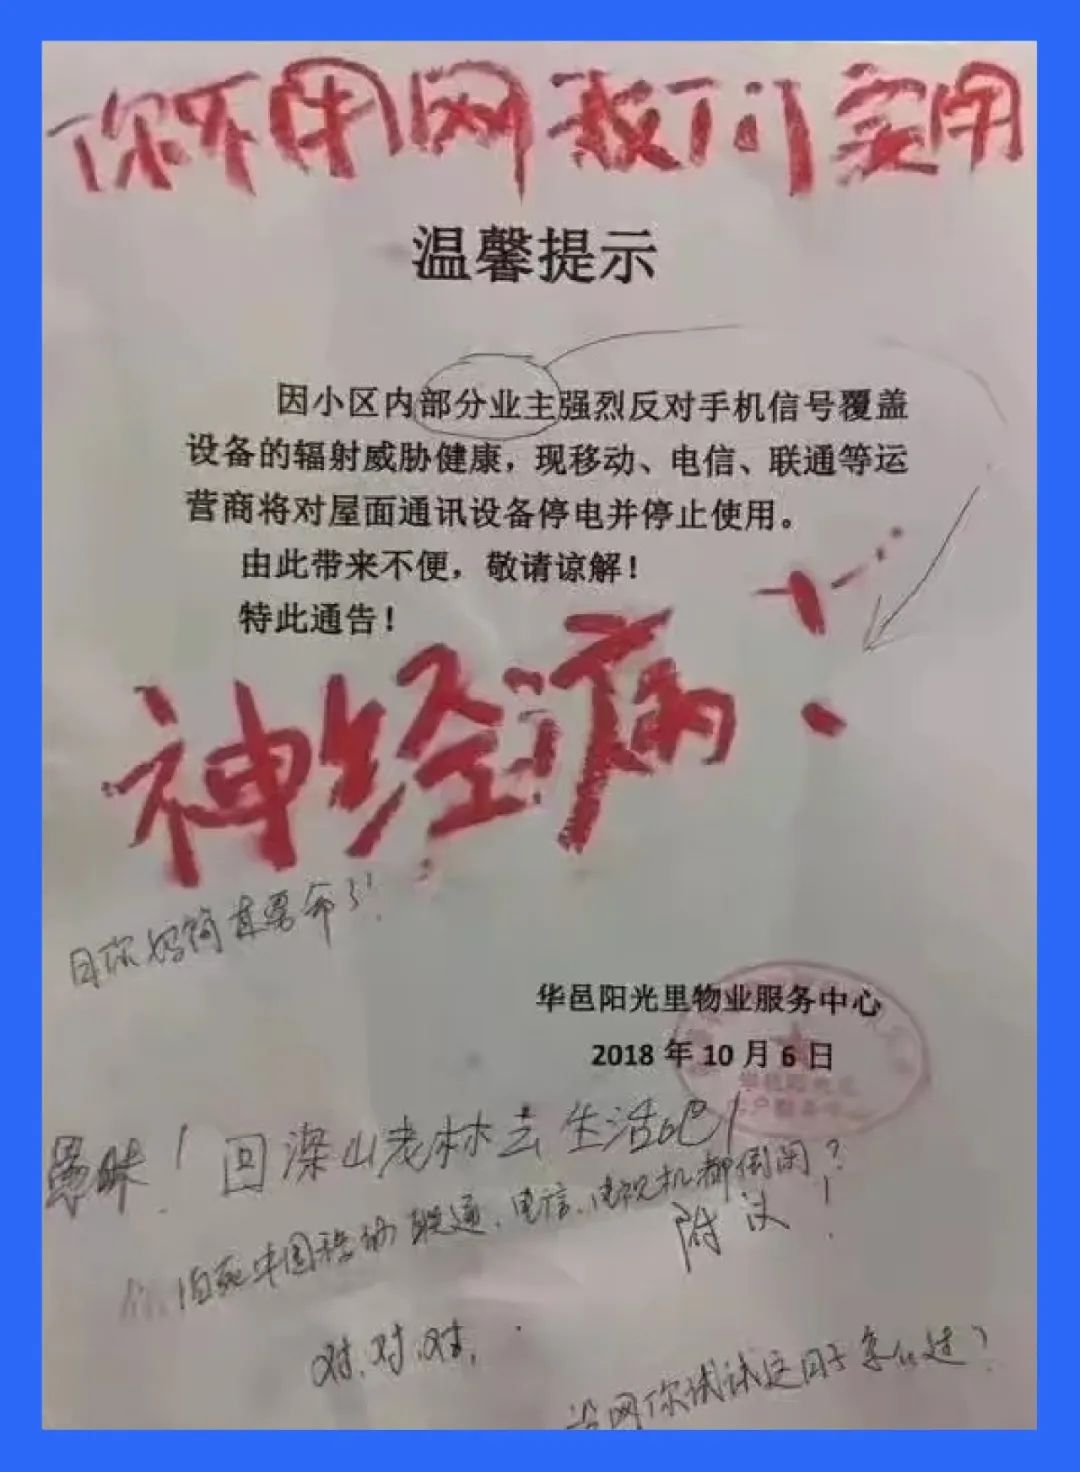 你不用网我们实用
温馨提示
因小区内部分业主强烈反对手机信号覆盖
设备的辐射威胁健康，现移动、电信、联通等运
营商将对屋面通讯设备停电并停止使用。
由此带来不便，敬请谅解！
特此通告！
神经病！
日你妈简直要命了！
华邑阳光里物业服务中心
2018年10月6日
愚昧！回深山老林去生活吧！
怕死中国移动联通、电信、电视机都倒闭？
附议！
对.对.对.
没网你试试这日子怎么过？